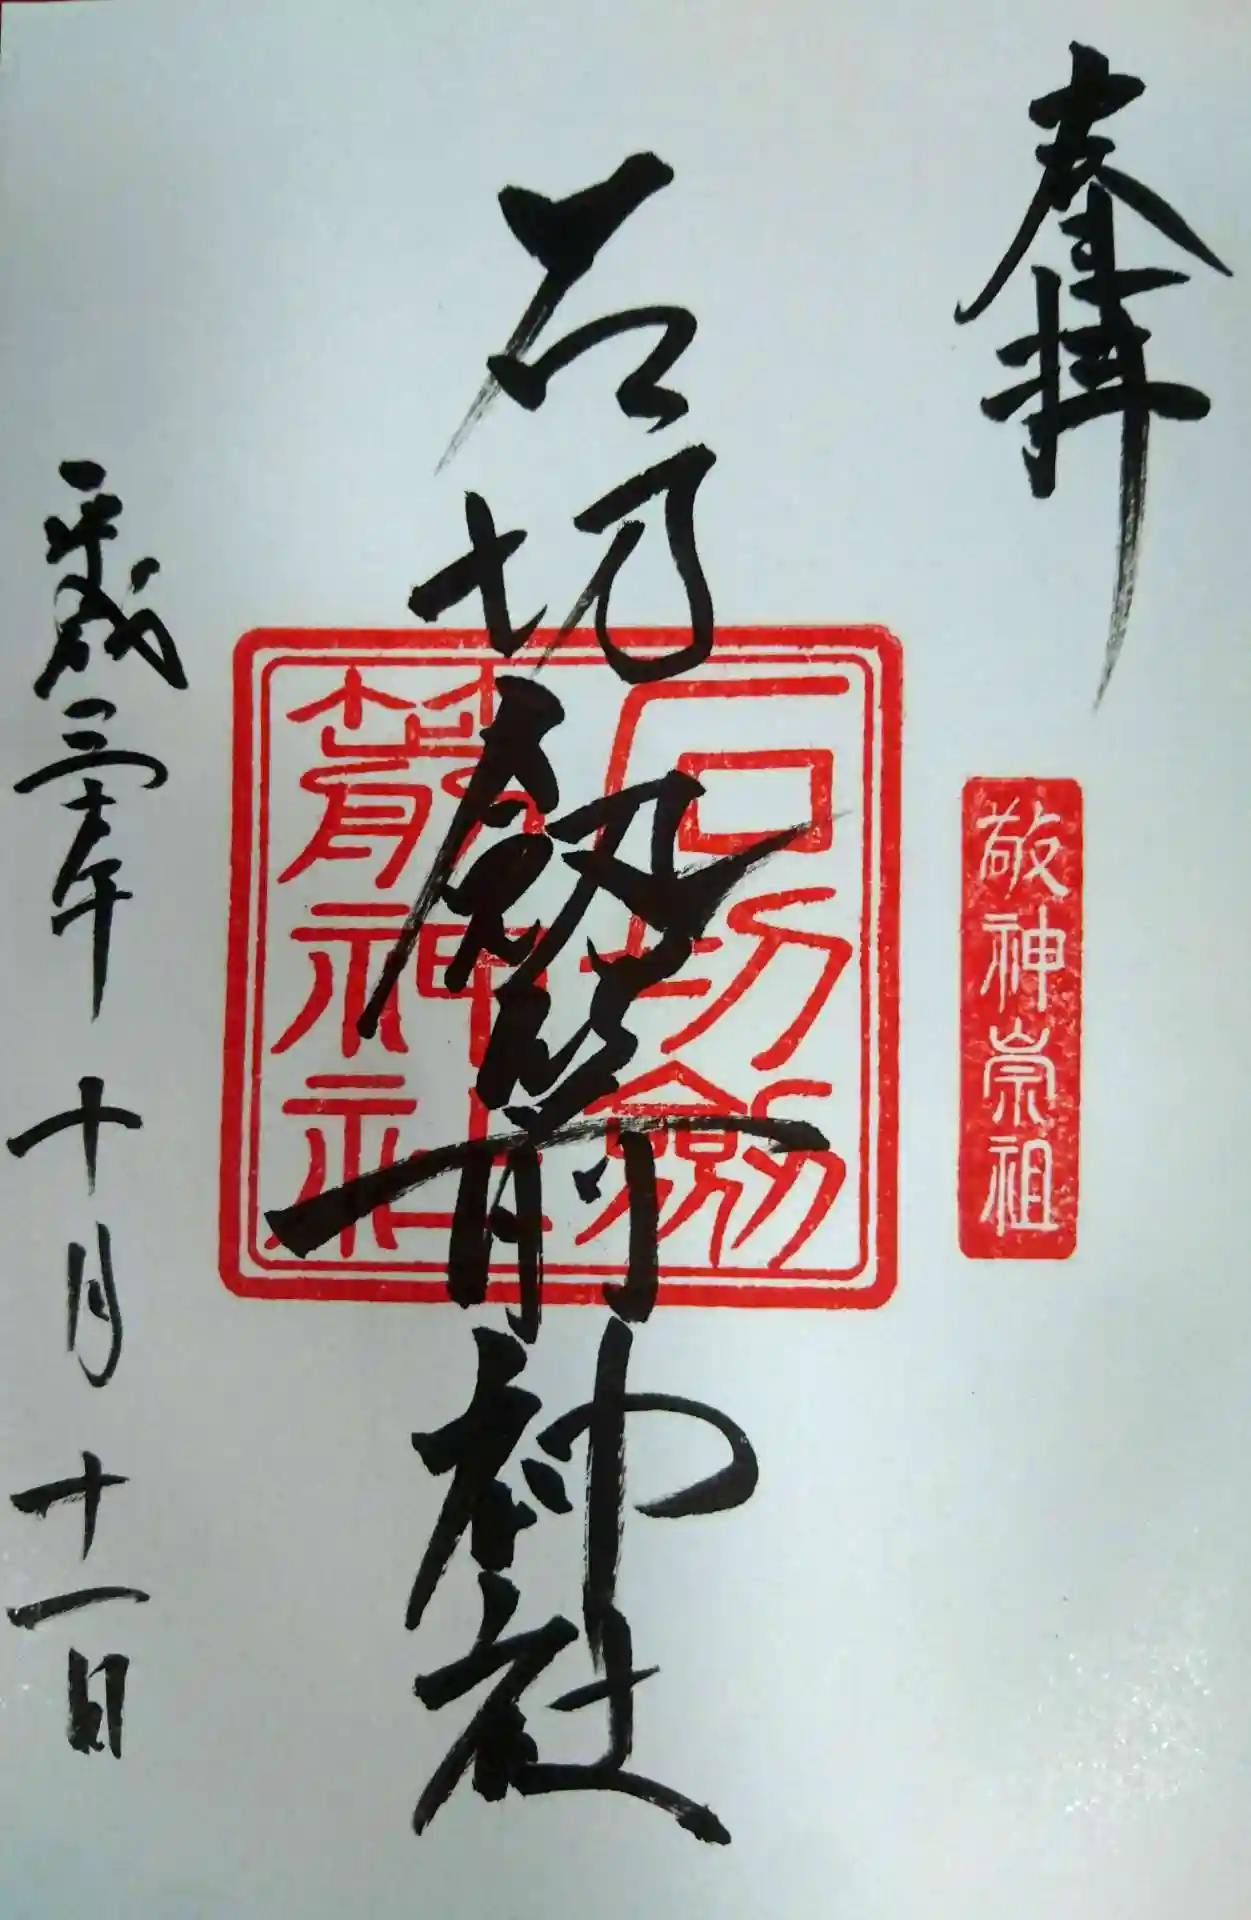 奉拝
敬神崇祖
石切劔箭神社
石切劔
箭神社
平成三十年十月十一日